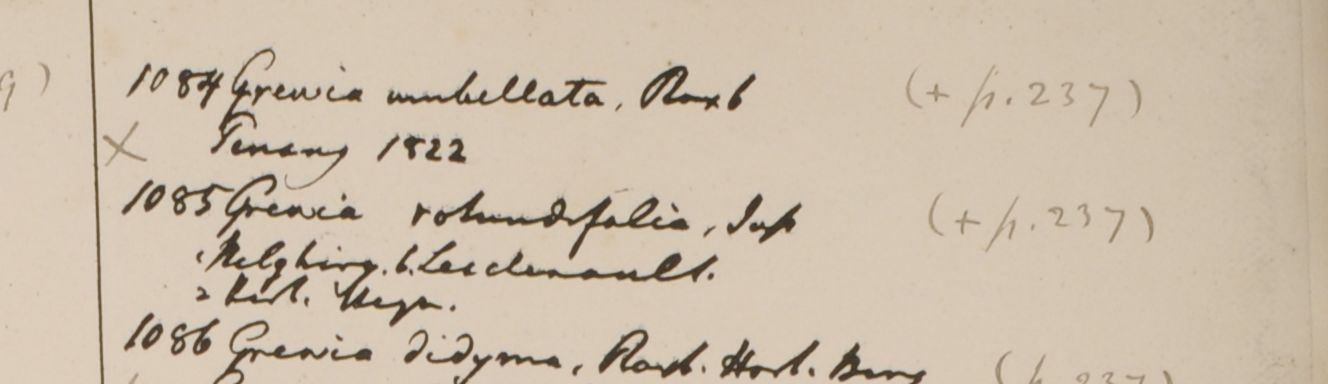 9)
1084 Grewia umbellata, Roxb (+ p. 237)
× Penang 1822
1085 Grewia rotundifolia, Jus (+ p. 237)
1 h. Leschenault.
2 Herb. Heyn.
1086 Grewia didyma, Roxb. Hort. Beng (p. 237)